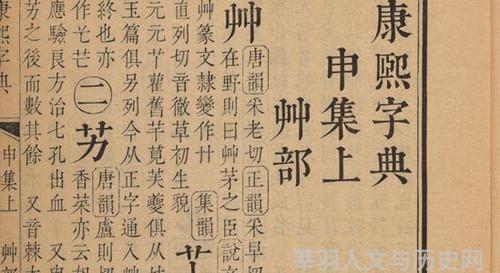 康熙字典
申集上
艸部
艸 唐韻 采老切 正韻 采早切
在野則曰艸茅之臣 說文
艸篆文隷變作
直列切音徹草初生貌 集韻
舊芊莧芙夔俱从
玉篇俱另列今从正字通入艸
終也亦
作 二 艻 唐韻盧則切
香菜亦云如
應驗良方治七孔出血 又
艻之後而數其餘 又音棘
字典 申集上 艸部
莘羽人文与历史网